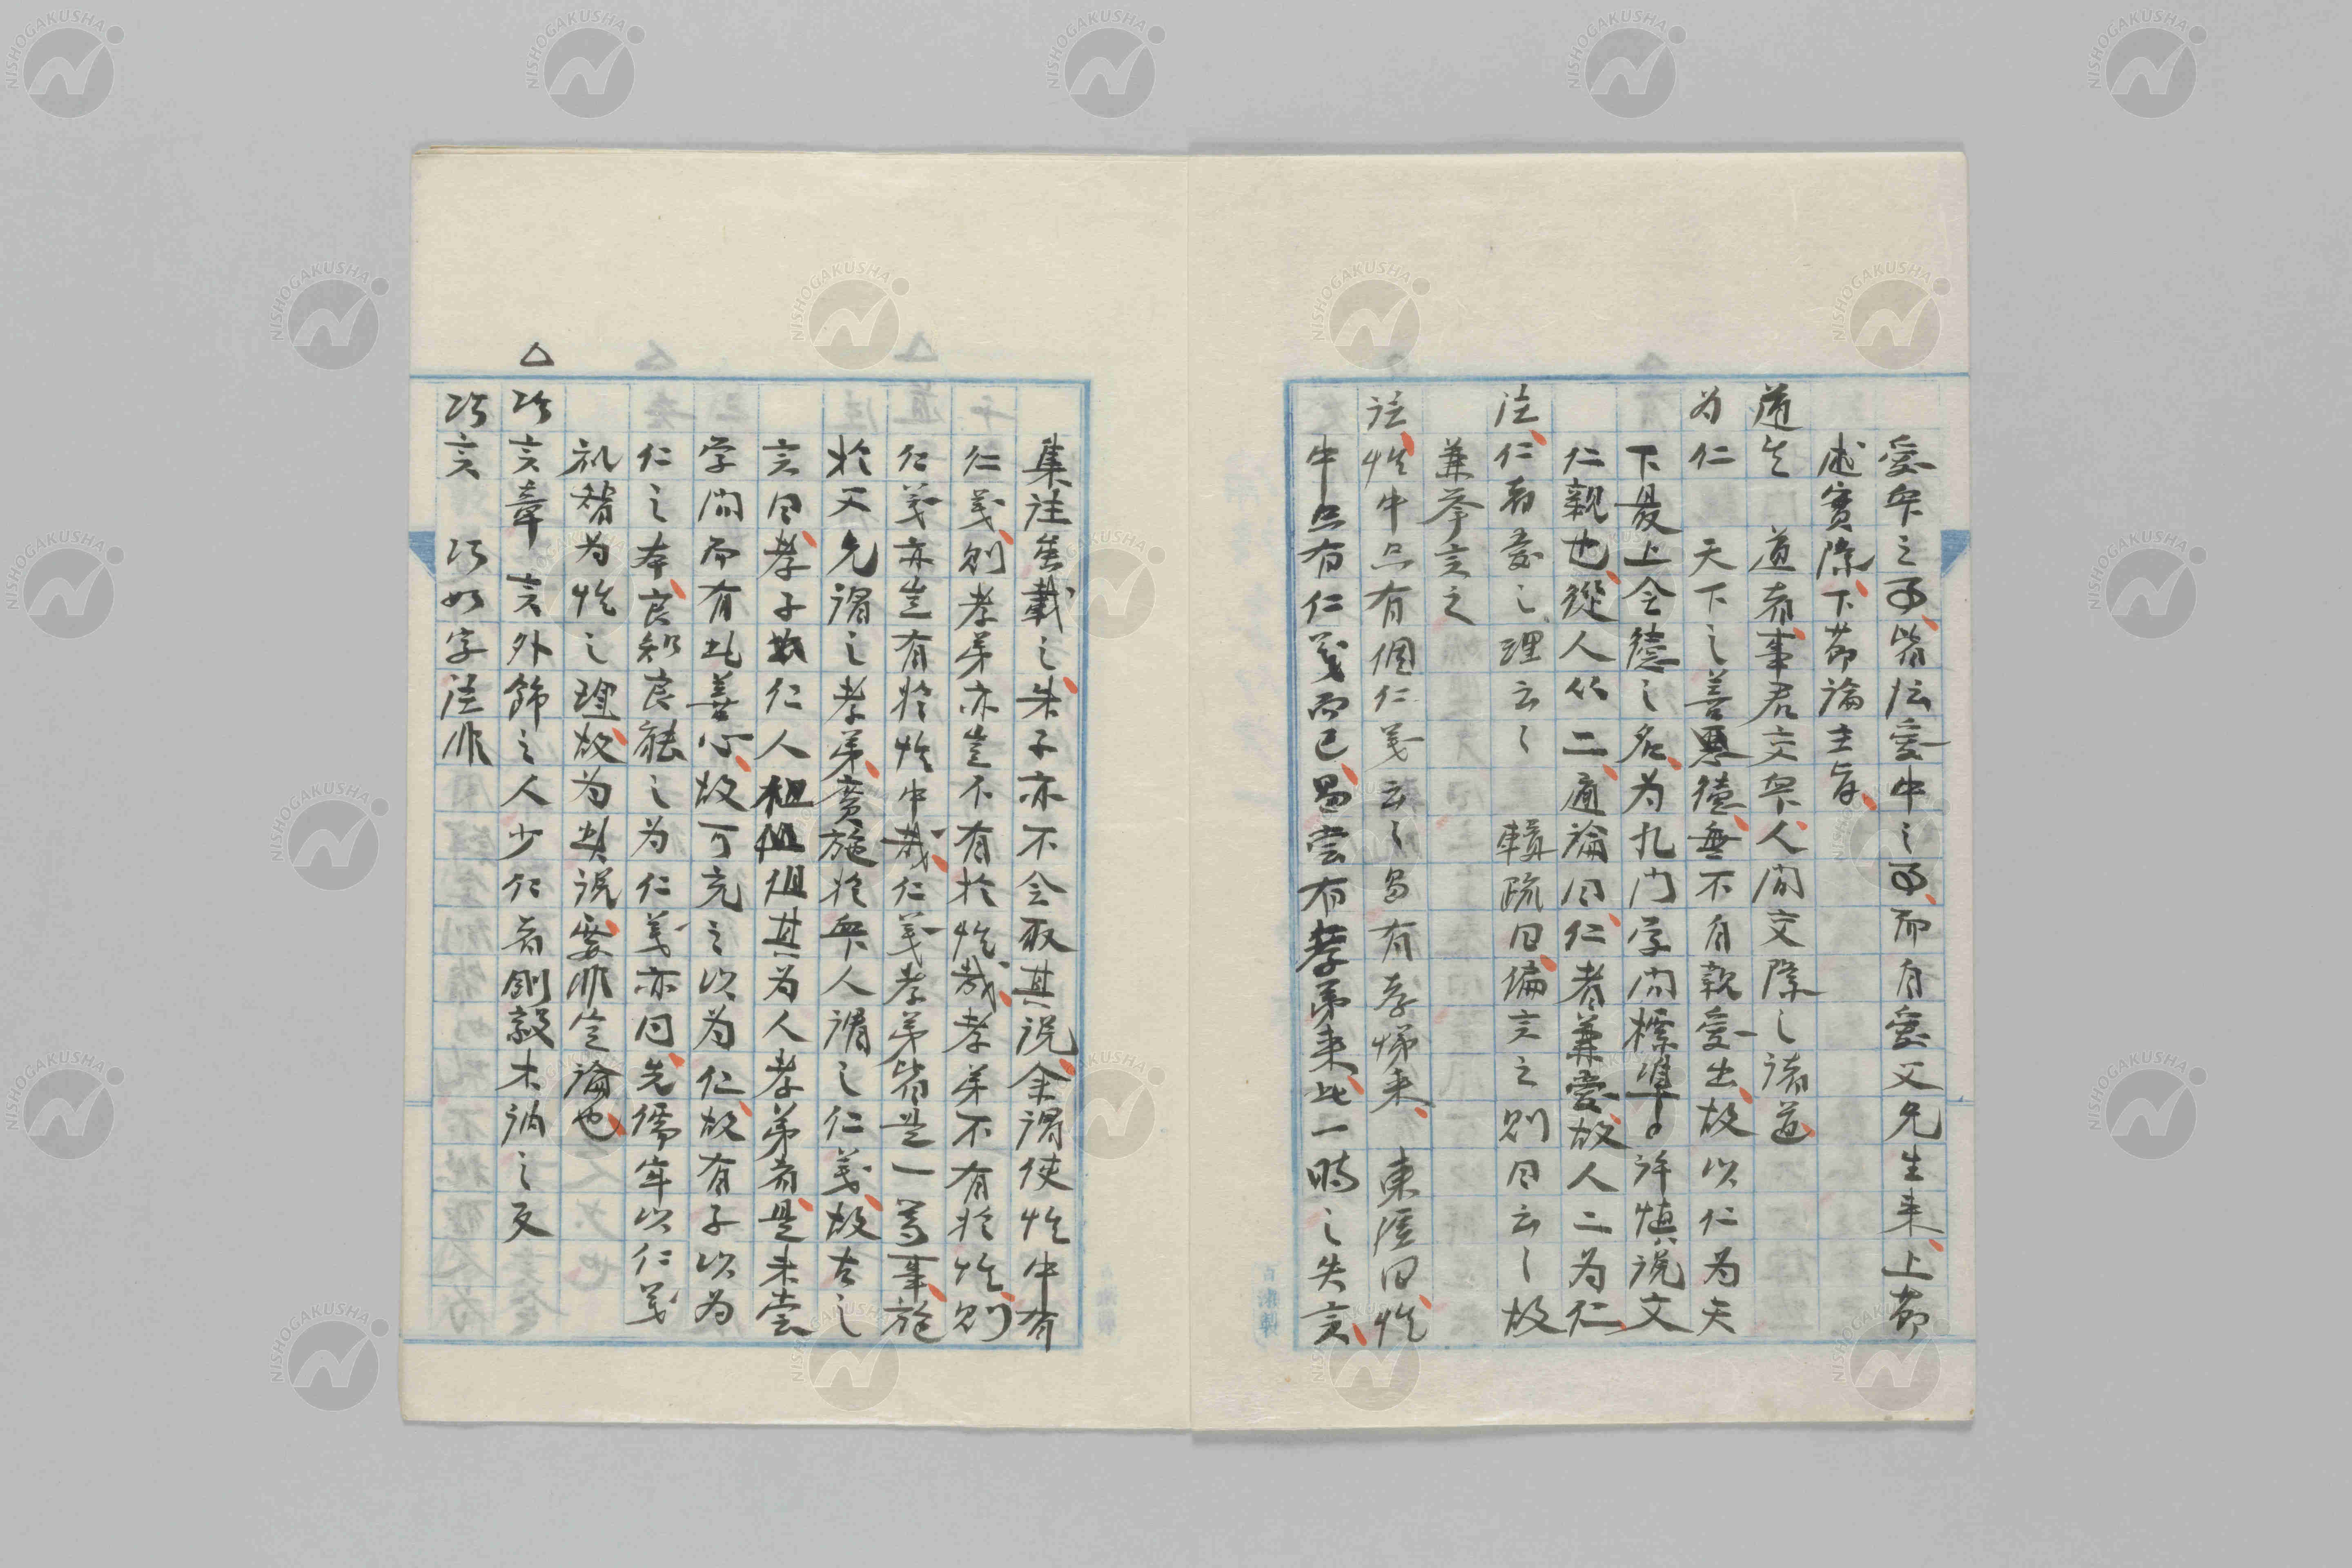 愛衆之事皆泛愛中之事而自愛父兄生来上節
述實際下節論主旨
道生　道者事君交衆人間交際之諸道
為仁　天下之善悪徳無不自親愛出故以仁為天
下最上全徳之名為孔門学問標準許慎説文
仁親也從人从二通論曰仁者兼愛故人二為仁
注仁者愛之理云々　輯疏曰偏言之則曰云々故
兼挙言之
註性中只有個仁義云々曷有孝悌来　東涯曰性
中只有仁義而已曷嘗有孝弟来此一時之失言
集註雖載之朱子亦不全取其説余謂使性中有
仁義則孝弟亦豈不有於性哉孝弟不有於性則
仁義亦豈有於性中哉仁義孝弟皆是一等事施
於父兄謂之孝弟廣施於衆人謂之仁義故古之
言曰孝子仁人但其為人孝弟者是未嘗
学問而有此善心故可充之以為仁故有子以為
仁之本良知良能之為仁義亦同先儒牢以仁義
礼智為性之理故為此説要非定論也
△
巧言章　言外飾之人少仁者剛毅木訥之反
巧言　巧如字注非
NISHOGAKUSHA